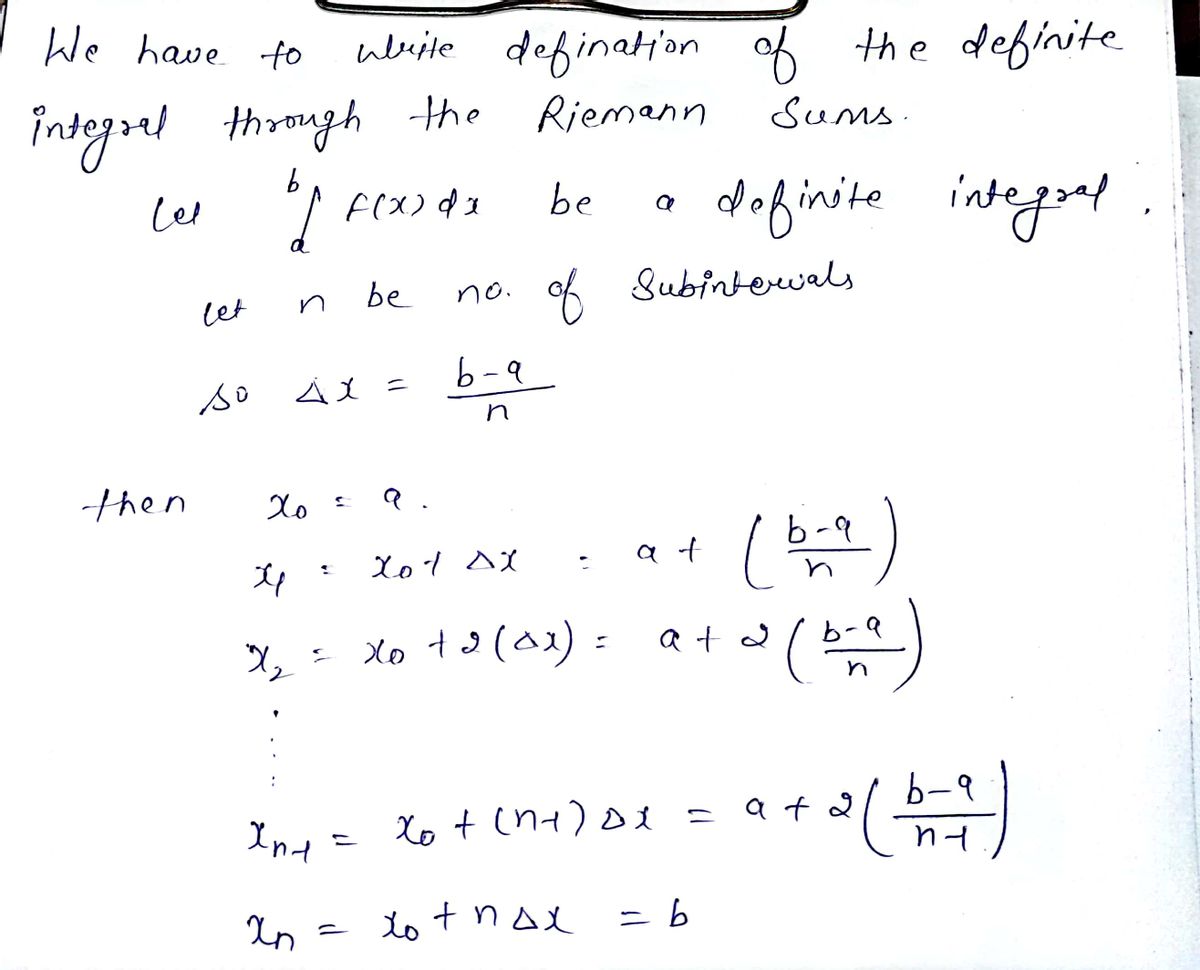 We have to write defination of the definite
integral through the Riemann Sums.
Let ∫_a^b f(x) dx be a definite integral.
let n be no. of Subintervals
so Δx = (b-a)/n
then x₀ = a.
x₁ = x₀ + Δx = a + ((b-a)/n)
x₂ = x₀ + 2(Δx) = a + 2((b-a)/n)
⋮
xₙ₋₁ = x₀ + (n-1)Δx = a + 2((b-a)/(n-1))
xₙ = x₀ + nΔx = b